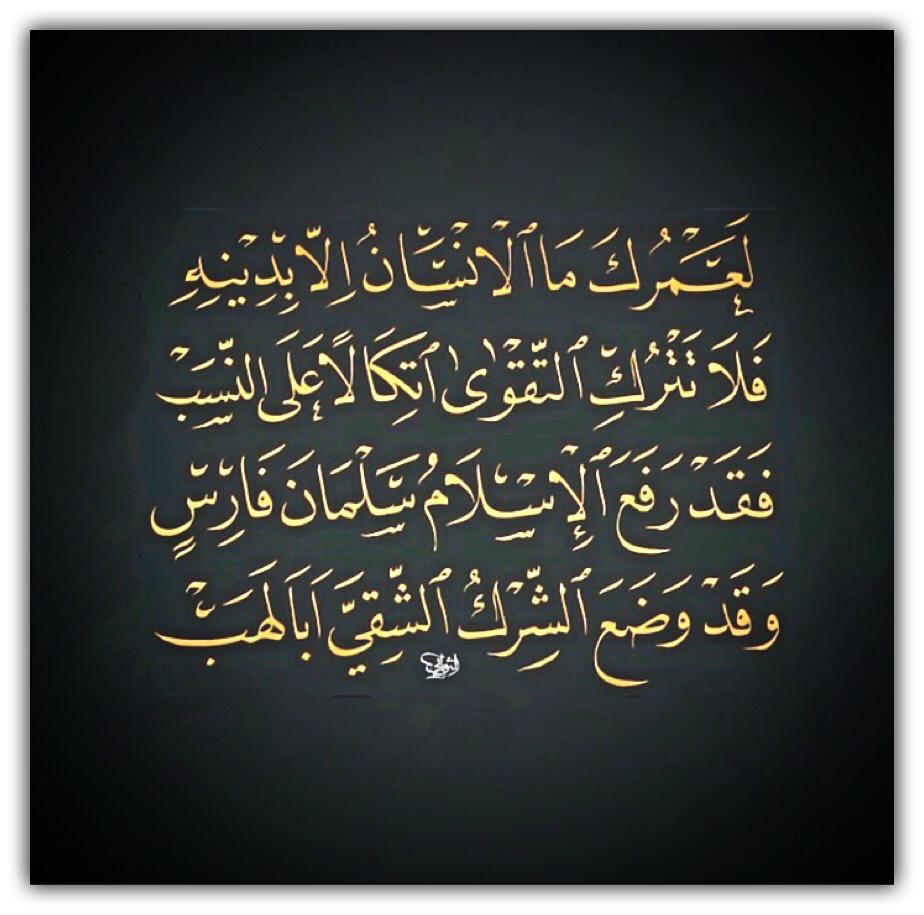 لَعَمْرُكَ مَا ٱلْاِنْسَّانُ اِلّا بِدِينِهِ
فَلَا تَتْرُكِ ٱلتَّقْوٰى ٱتِكَالًا عَلَى النَّسَبْ
فَقَدْ رَفَعَ ٱلْإِسْلَامُ سَلْمَانَ فَارِسٍّ
وَقَدْ وَضَعَ ٱلشِّرْكُ ٱلشَّقِيَّ اَبَا لَهَبْ